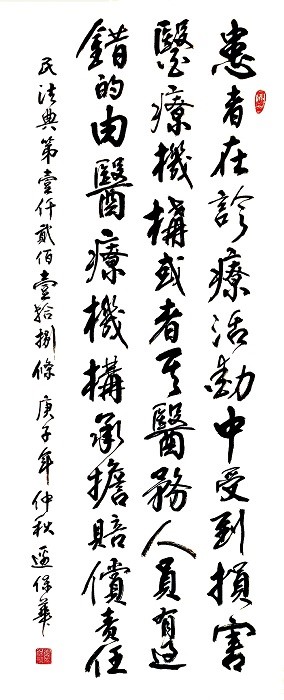 患者在診療活動中受到損害
醫療機構或者其醫務人員有过
錯的由醫療機構承擔賠償责任
民法典第壹仟貳佰壹拾捌條 庚子年仲秋 保華